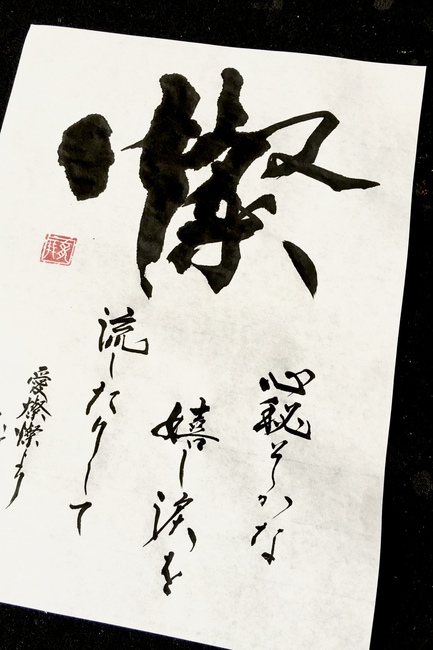 燦
心秘そかな
嬉し涙を
流したりして
愛燦燦より